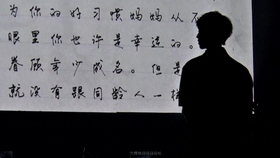 为你的好习惯妈妈从不
眼里你也许是幸运的。
眷顾年少成名。但是
就没有跟同龄人一样